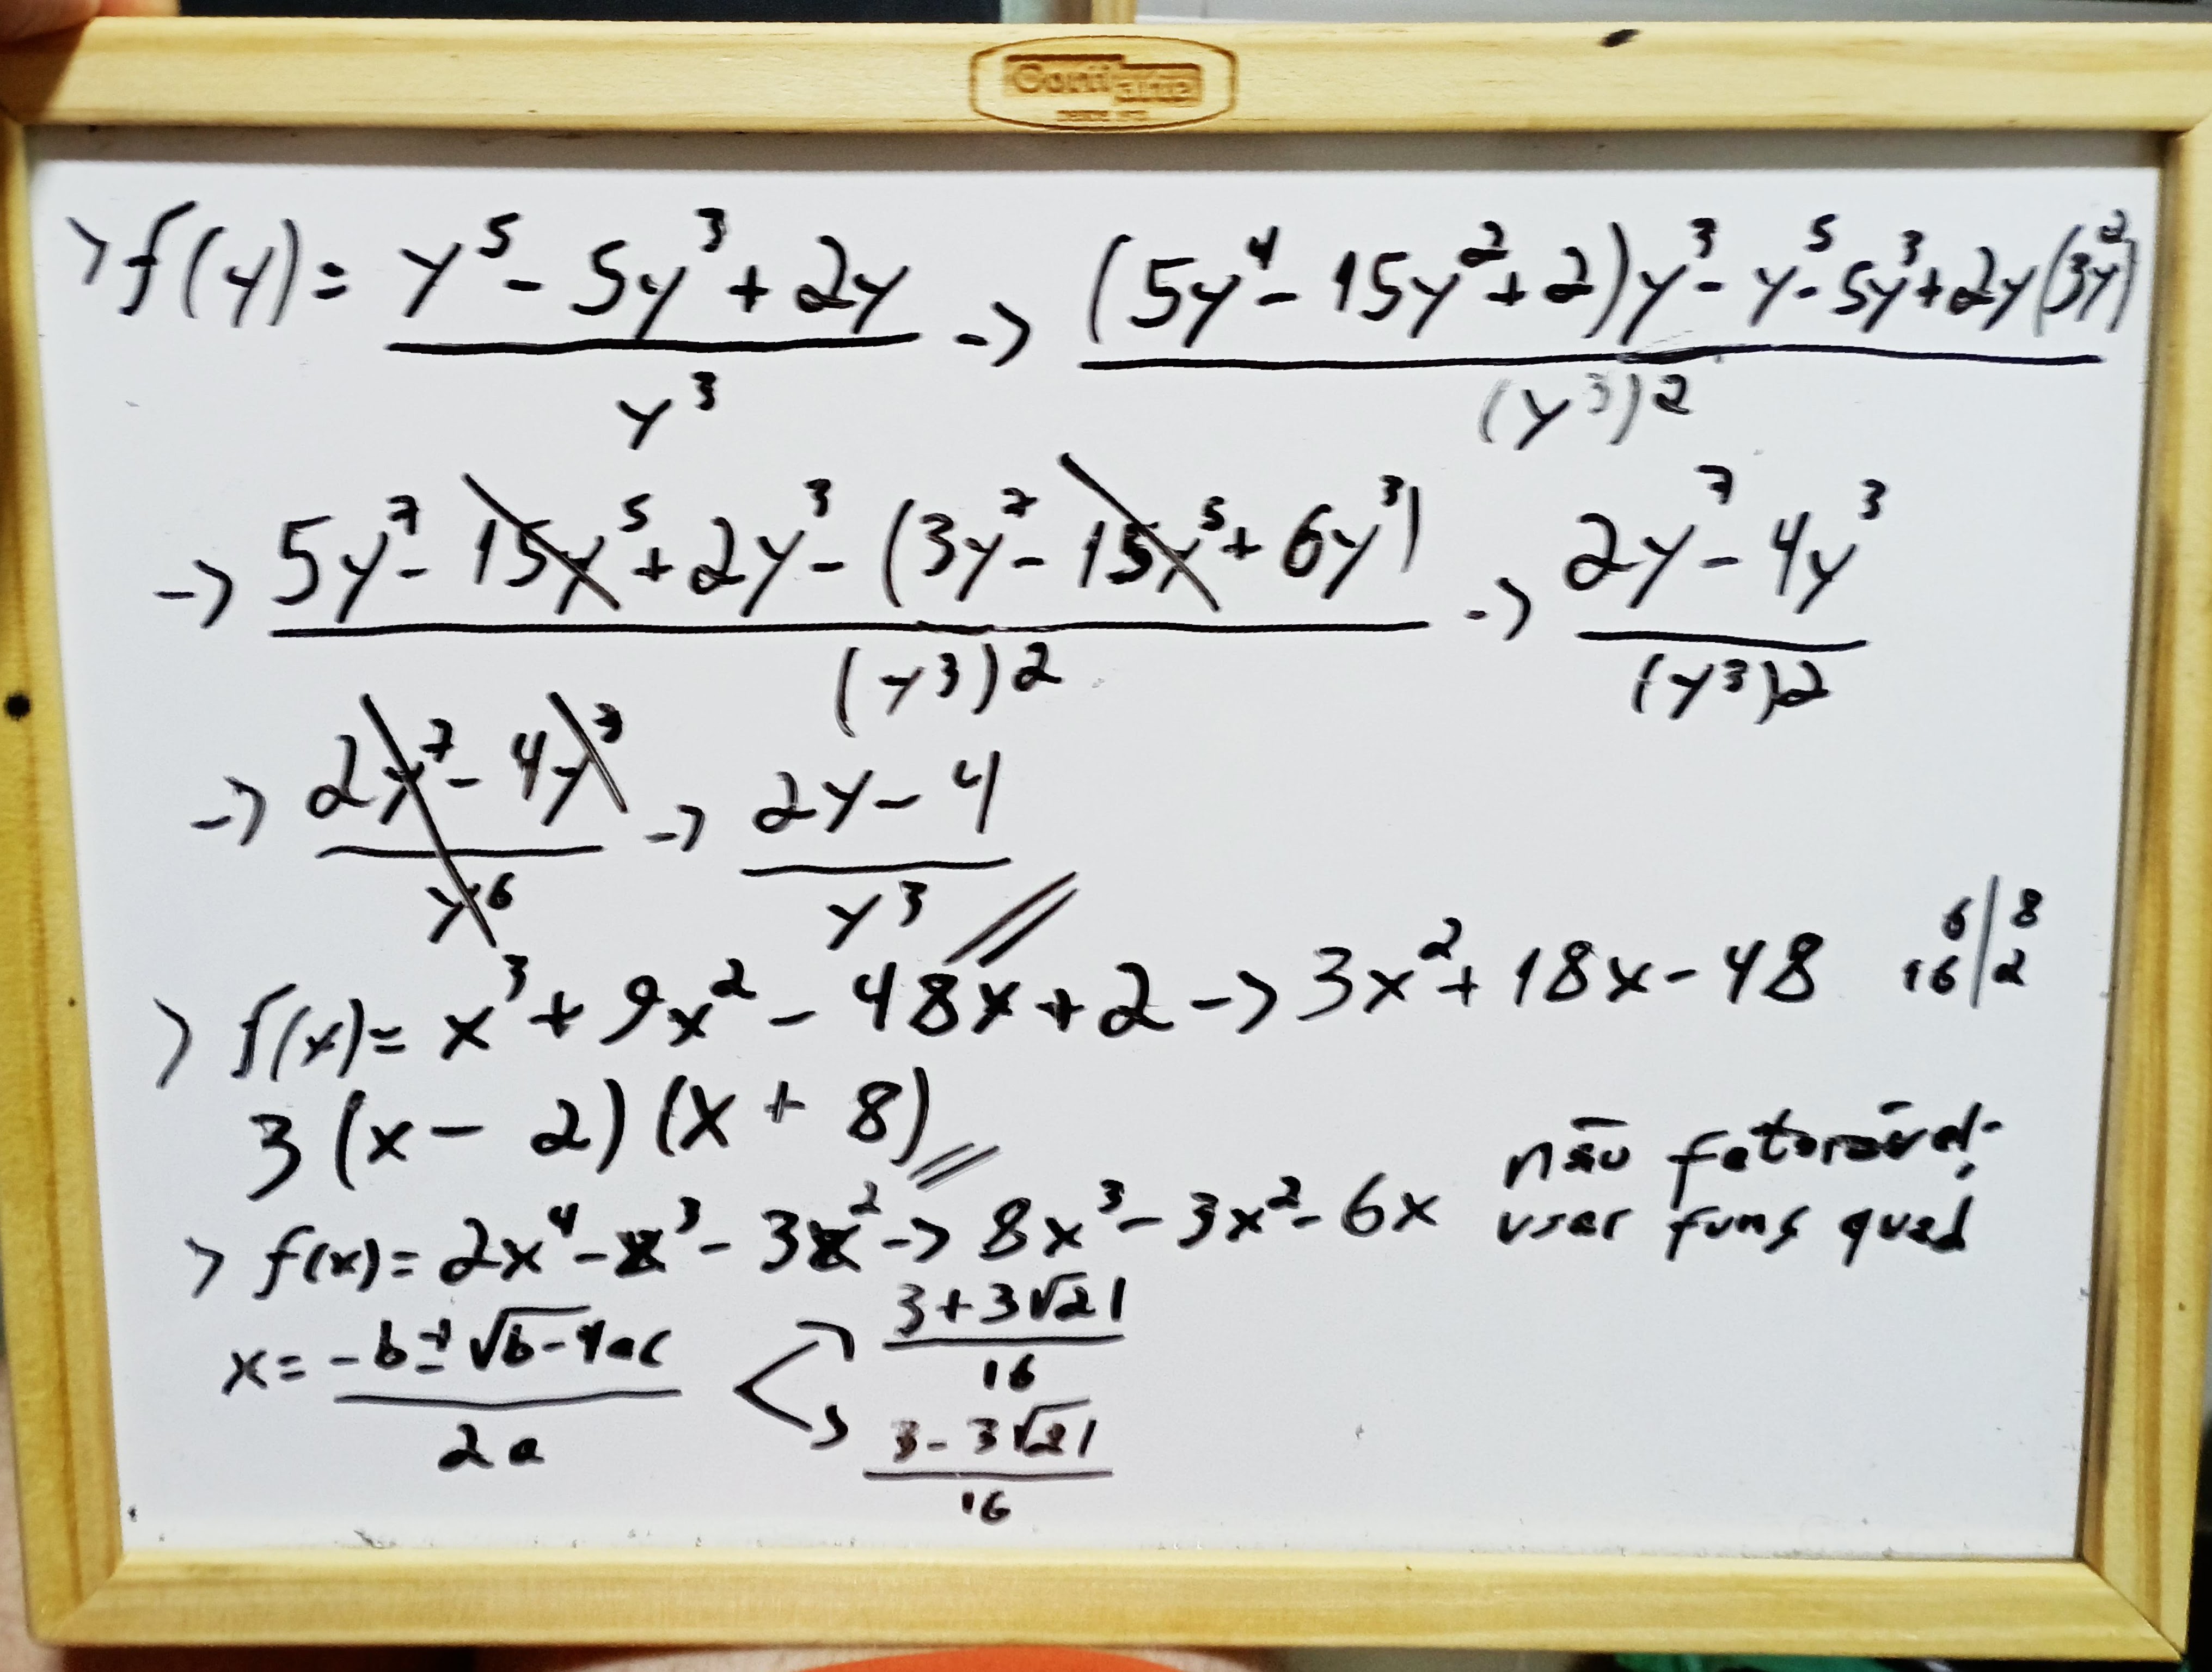 Confi arte
> f(y) = (y⁵ - 5y³ + 2y)/y³ -> ((5y⁴ - 15y² + 2)y³ - y⁵ - 5y³ + 2y(3y²))/(y³)²
-> (5y⁷ - 15y⁵ + 2y³ - (3y⁷ - 15y⁵ + 6y³))/(y³)² -> (2y⁷ - 4y³)/(y³)²
-> (2y⁷ - 4y³)/y⁶ -> (2y - 4)/y³
> f(x) = x³ + 9x² - 48x + 2 -> 3x² + 18x - 48 6|8 16|2
3(x - 2)(x + 8)
não fatorável.
> f(x) = 2x⁴ - x³ - 3x² -> 8x³ - 3x² - 6x usar funç quad
x = (-b ± √b-4ac)/2a < (3 + 3√21)/16
(3 - 3√21)/16